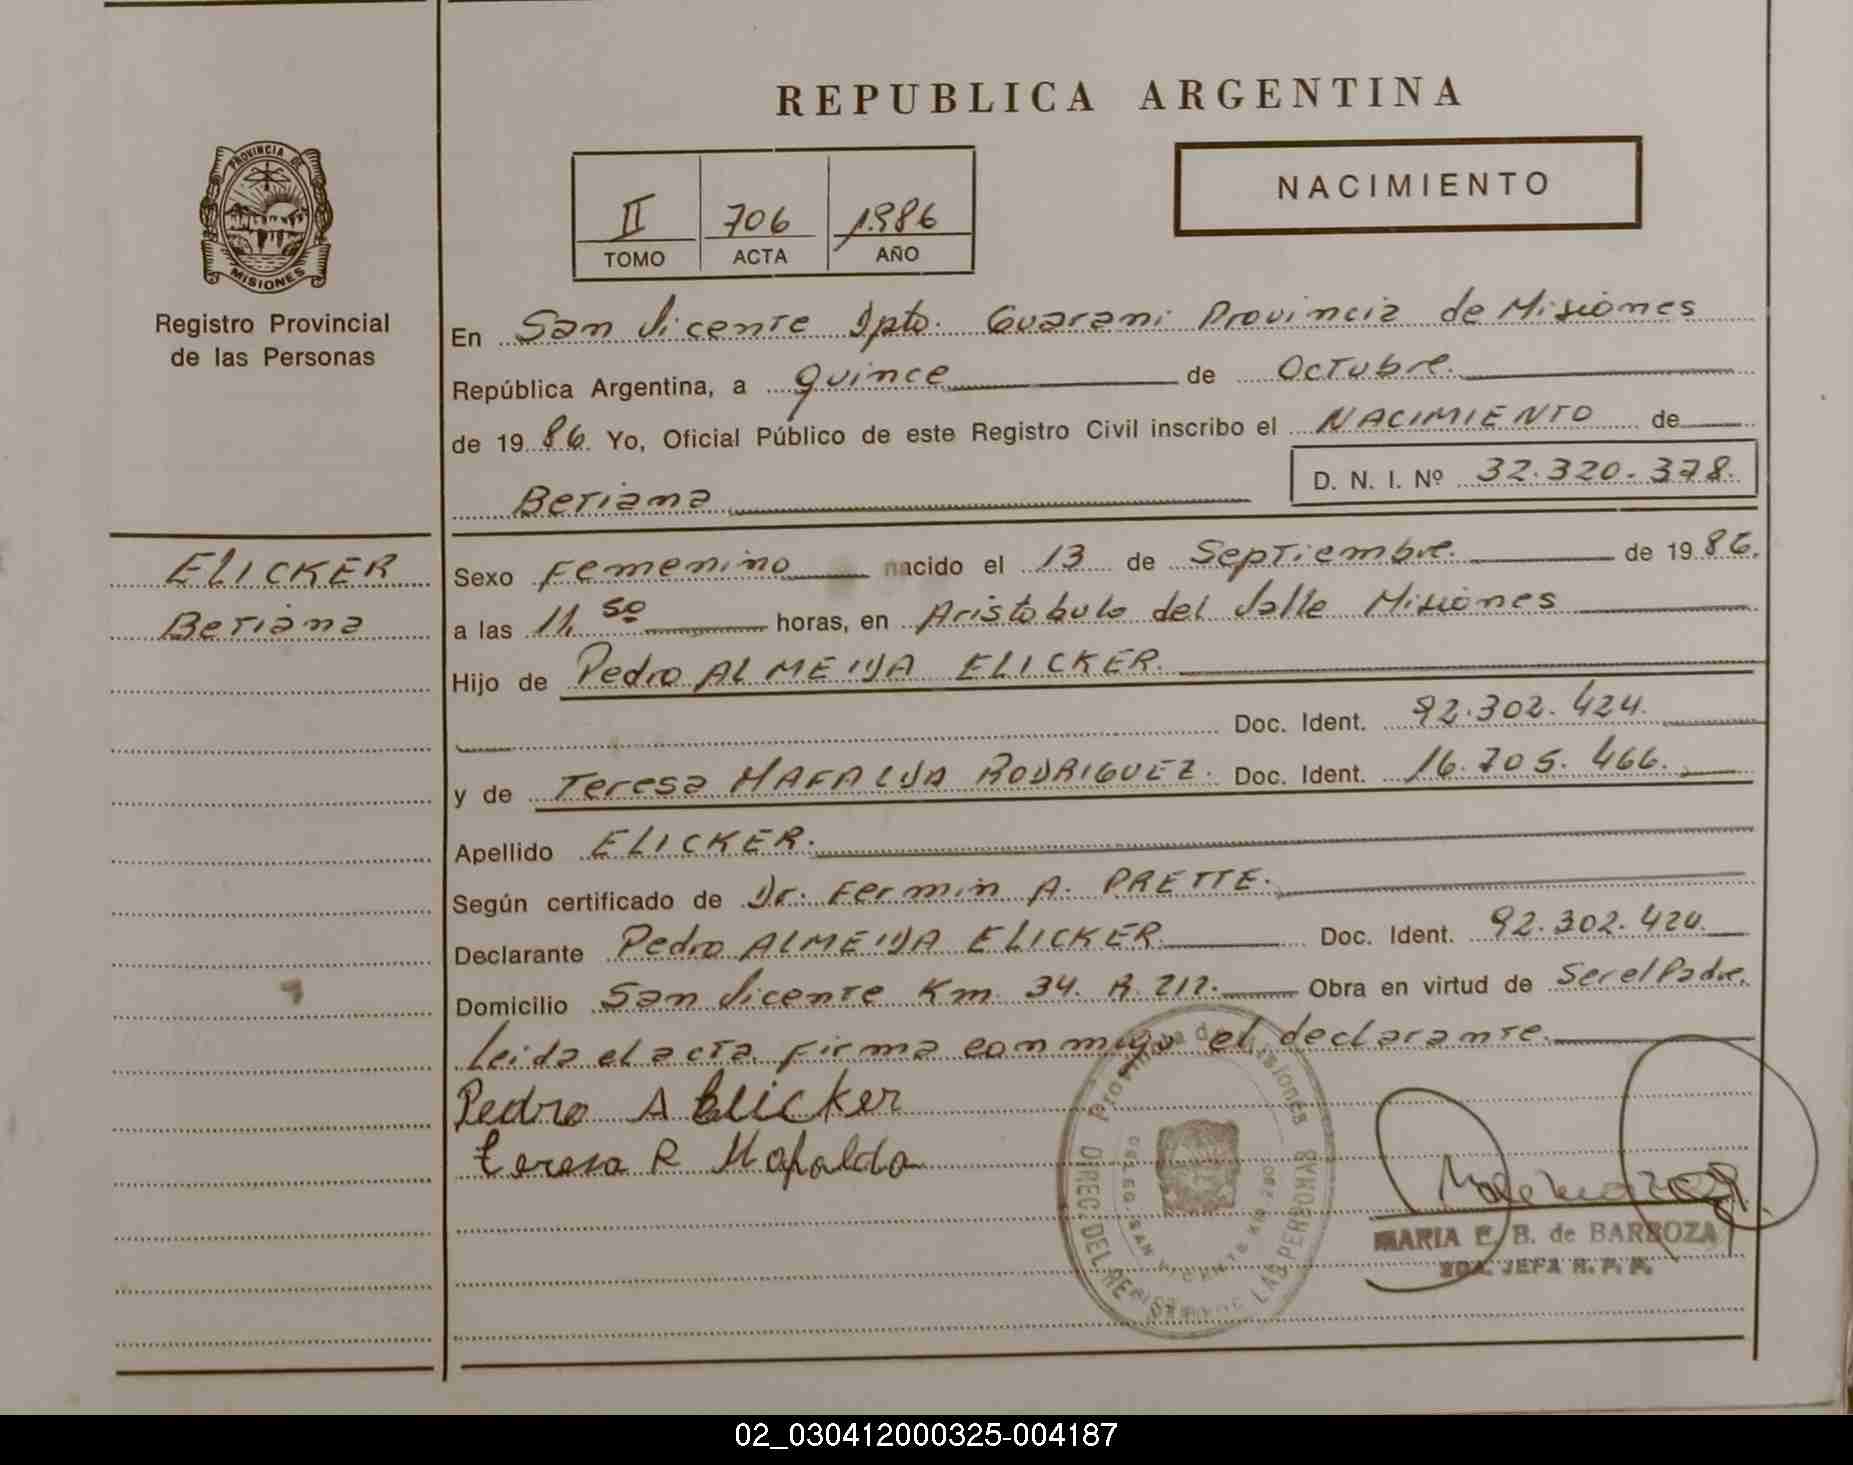 REPUBLICA ARGENTINA
PROVINCIA DE
MISIONES
Registro Provincial
de las Personas
II 706 1.986
TOMO ACTA AÑO
NACIMIENTO
En San Vicente Dpto. Guarani Provincia de Misiones
República Argentina, a quince de Octubre.
de 19 86. Yo, Oficial Público de este Registro Civil inscribo el NACIMIENTO de
Betiana D. N. I. Nº 32.320.378.
ELICKER
Betiana
Sexo Femenino nacido el 13 de Septiembre. de 19 86.
a las 11,50 horas, en Aristobulo del Valle Misiones
Hijo de Pedro ALMEIDA ELICKER.
Doc. Ident. 92.302.424.
y de Teresa MAFALDA RODRIGUEZ. Doc. Ident. 16.705.466.
Apellido ELICKER.
Según certificado de Dr. Fermin A. PRETTE.
Declarante Pedro ALMEIDA ELICKER Doc. Ident. 92.302.424.
Domicilio San Vicente Km. 34. R. 212. Obra en virtud de Ser el Padre.
Leida el acta firma conmigo el declarante.
Pedro A Elicker
Teresa R Mafalda
Provincia de Misiones
DIREC. DEL REGISTRO DE LAS PERSONAS
MARIA E. B. de BARBOZA
2DA. JEFA R. P. P.
02_030412000325-004187